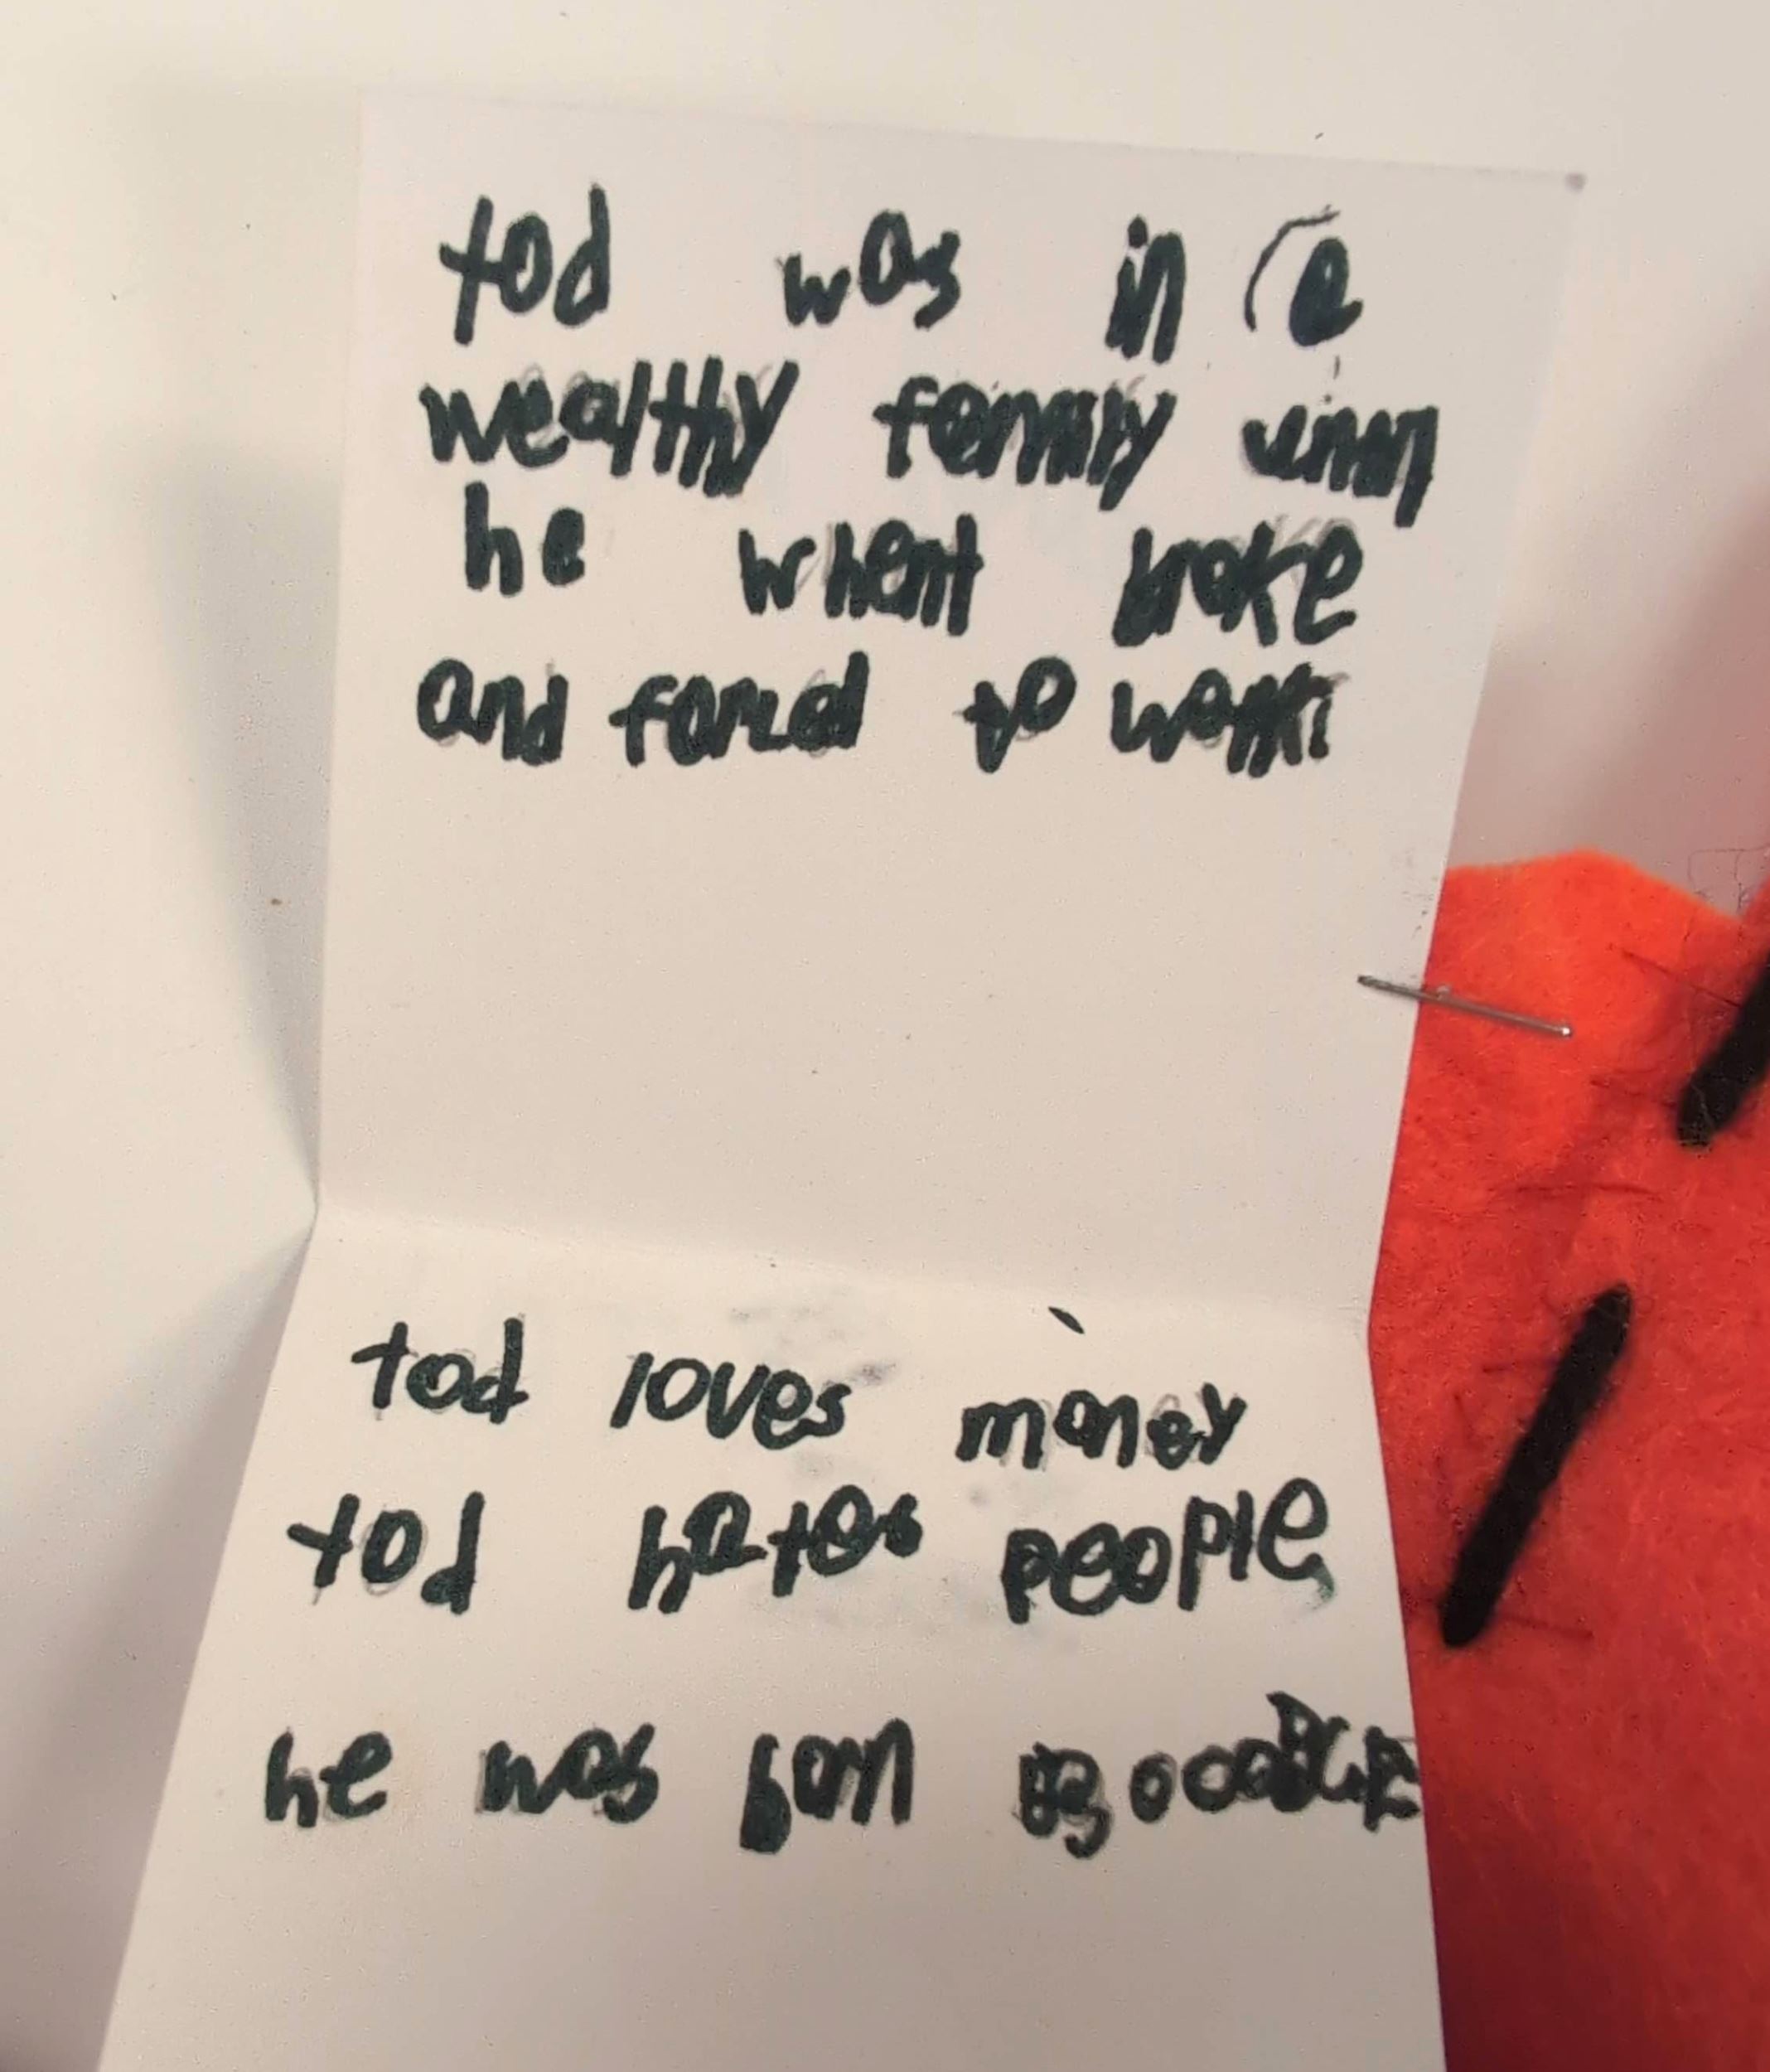 tod was in a
wealthy femily
he whent broke
and forced to work
tod loves money
tod hates people
he was born